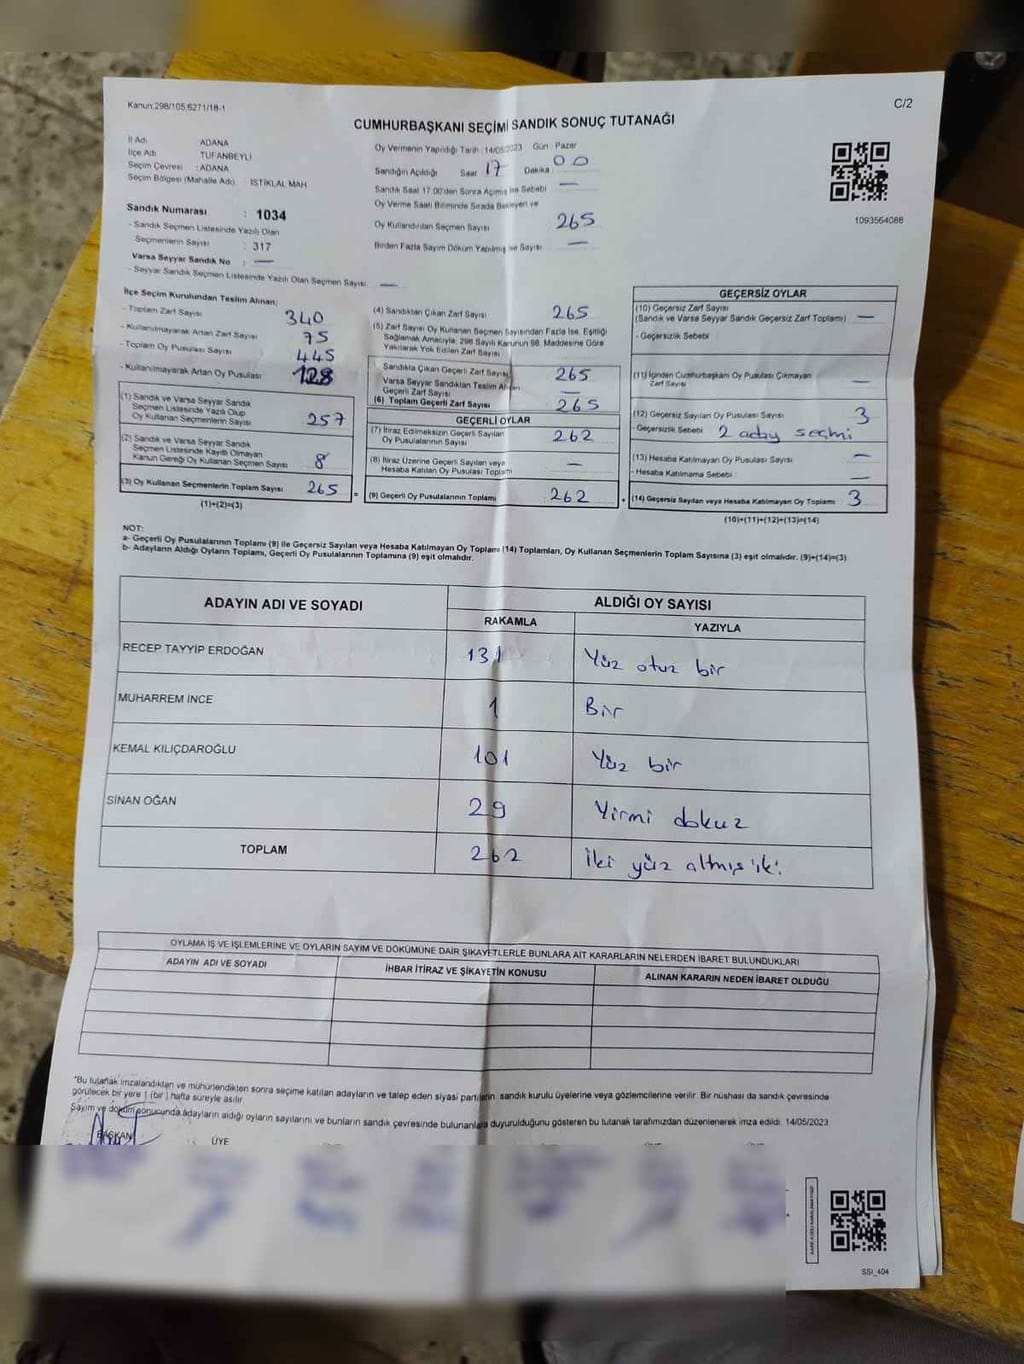 Kanun:298/105,6271/18-1
C/2
CUMHURBAŞKANI SEÇİMİ SANDIK SONUÇ TUTANAĞI
İl Adı : ADANA
İlçe Adı : TUFANBEYLİ
Seçim Çevresi : ADANA
Seçim Bölgesi (Mahalle Adı) : İSTİKLAL MAH
Sandık Numarası : 1034
- Sandık Seçmen Listesinde Yazılı Olan
Seçmenlerin Sayısı : 317
Varsa Seyyar Sandık No : —
- Seyyar Sandık Seçmen Listesinde Yazılı Olan Seçmen Sayısı —
Oy Vermenin Yapıldığı Tarih : 14/05/2023 Gün : Pazar
Sandığın Açıldığı Saat 17 Dakika 00
Sandık Saat 17:00'den Sonra Açılmış İse Sebebi —
Oy Verme Saati Bitiminde Sırada Bekleyen ve
Oy Kullandırılan Seçmen Sayısı 265
Birden Fazla Sayım Döküm Yapılmış İse Sayısı —
1093564088
İlçe Seçim Kurulundan Teslim Alınan;
- Toplam Zarf Sayısı 340
- Kullanılmayarak Artan Zarf Sayısı 75
- Toplam Oy Pusulası Sayısı 445
- Kullanılmayarak Artan Oy Pusulası 128
(1) Sandık ve Varsa Seyyar Sandık
Seçmen Listesinde Yazılı Olup
Oy Kullanan Seçmenlerin Sayısı 257
(2) Sandık ve Varsa Seyyar Sandık
Seçmen Listesinde Kayıtlı Olmayan
Kanun Gereği Oy Kullanan Seçmen Sayısı 8
(3) Oy Kullanan Seçmenlerin Toplam Sayısı 265
(1)+(2)=(3)
(4) Sandıktan Çıkan Zarf Sayısı 265
(5) Zarf Sayısı Oy Kullanan Seçmen Sayısından Fazla İse, Eşitliği
Sağlamak Amacıyla, 298 Sayılı Kanunun 98. Maddesine Göre
Yakılarak Yok Edilen Zarf Sayısı
Sandıkta Çıkan Geçerli Zarf Sayısı 265
Varsa Seyyar Sandıktan Teslim Alınan
Geçerli Zarf Sayısı —
(6) Toplam Geçerli Zarf Sayısı 265
GEÇERLİ OYLAR
(7) İtiraz Edilmeksizin Geçerli Sayılan
Oy Pusulalarının Sayısı 262
(8) İtiraz Üzerine Geçerli Sayılan veya
Hesaba Katılan Oy Pusulası Toplamı —
= (9) Geçerli Oy Pusulalarının Toplamı 262 +
GEÇERSİZ OYLAR
(10) Geçersiz Zarf Sayısı
(Sandık ve Varsa Seyyar Sandık Geçersiz Zarf Toplamı) —
- Geçersizlik Sebebi
(11) İçinden Cumhurbaşkanı Oy Pusulası Çıkmayan
Zarf Sayısı —
(12) Geçersiz Sayılan Oy Pusulası Sayısı 3
- Geçersizlik Sebebi 2 aday seçmi
(13) Hesaba Katılmayan Oy Pusulası Sayısı —
- Hesaba Katılmama Sebebi —
(14) Geçersiz Sayılan veya Hesaba Katılmayan Oy Toplamı 3
(10)+(11)+(12)+(13)=(14)
NOT:
a- Geçerli Oy Pusulalarının Toplamı (9) ile Geçersiz Sayılan veya Hesaba Katılmayan Oy Toplamı (14) Toplamları, Oy Kullanan Seçmenlerin Toplam Sayısına (3) eşit olmalıdır. (9)+(14)=(3)
b- Adayların Aldığı Oyların Toplamı, Geçerli Oy Pusulalarının Toplamına (9) eşit olmalıdır.
ADAYIN ADI VE SOYADI
ALDIĞI OY SAYISI
RAKAMLA YAZIYLA
RECEP TAYYİP ERDOĞAN 131 Yüz otuz bir
MUHARREM İNCE 1 Bir
KEMAL KILIÇDAROĞLU 101 Yüz bir
SİNAN OĞAN 29 Yirmi dokuz
TOPLAM 262 İki yüz altmış iki
OYLAMA İŞ VE İŞLEMLERİNE VE OYLARIN SAYIM VE DÖKÜMÜNE DAİR ŞİKAYETLERLE BUNLARA AİT KARARLARIN NELERDEN İBARET BULUNDUKLARI
ADAYIN ADI VE SOYADI İHBAR İTİRAZ VE ŞİKAYETİN KONUSU ALINAN KARARIN NEDEN İBARET OLDUĞU
*Bu tutanak imzalandıktan ve mühürlendikten sonra seçime katılan adayların ve talep eden siyasi partilerin sandık kurulu üyelerine veya gözlemcilerine verilir. Bir nüshası da sandık çevresinde
görülecek bir yere 1 (bir) hafta süreyle asılır
Sayım ve döküm sonucunda adayların aldığı oyların sayılarını ve bunların sandık çevresinde bulunanlara duyurulduğunu gösteren bu tutanak tarafımızdan düzenlenerek imza edildi. 14/05/2023
BAŞKAN ÜYE
SSI_404